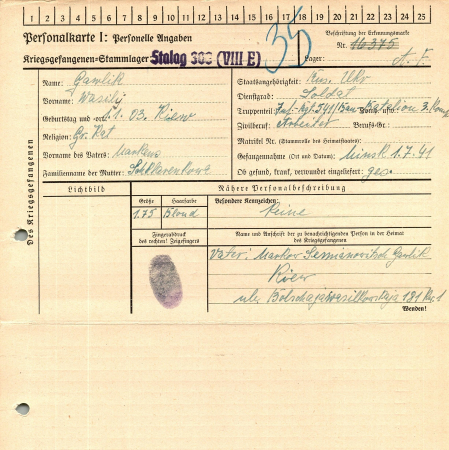 1 2 3 4 5 6 7 8 9 10 11 12 13 14 15 16 17 18 19 20 21 22 23 24 25
Personalkarte I: Personelle Angaben
Beschriftung der Erkennungsmarke
Nr. 16375
Kriegsgefangenen-Stammlager: Stalag 308 (VIII E)
35
Lager: A. F.
Des Kriegsgefangenen
Name: Gawlik
Vorname: Wasilij
Geburtstag und -ort: 1. 03. Kiew
Religion: Gr. Kat
Vorname des Vaters:
Familienname der Mutter:
Staatsangehörigkeit: Rus. Ukr
Dienstgrad: Soldat
Truppenteil: Inf. Rgt. 541/ Batalion 3. Komp
Zivilberuf: Arbeiter Berufs-Gr.:
Matrikel Nr. (Stammrolle des Heimatstaates):
Gefangennahme (Ort und Datum): Minsk 1.7.41
Ob gesund, krank, verwundet eingeliefert: ges.
Lichtbild
Nähere Personalbeschreibung
Größe
Haarfarbe
Besondere Kennzeichen:
1.75
Blond
Keine
Fingerabdruck
des rechten! Zeigefingers
Name und Anschrift der zu benachrichtigenden Person in der Heimat
des Kriegsgefangenen
Vater: Markow Gawlik
Kiew
181
Wenden!